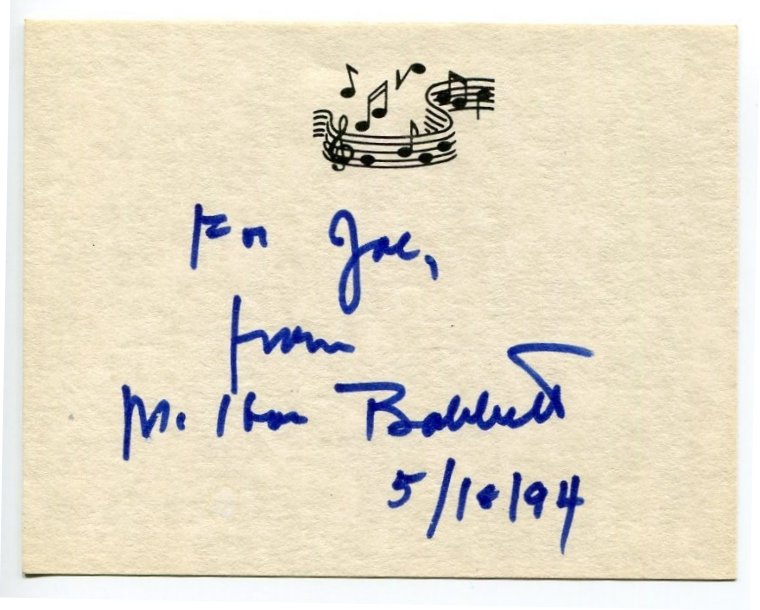 For Joe,
from
Milton Babbitt
5/18/94